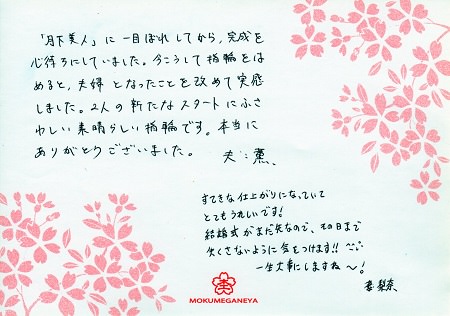 「月下美人」に一目ぼれしてから、完成を
心待ちにしていました。今こうして指輪をは
めると、夫婦となったことを改めて実感
しました。2人の新たなスタートにふさ
わしい素晴らしい指輪です。本当に
ありがとうございました。 夫:薫、
すてきな仕上がりになっていて
とてもうれしいです!
結婚式がまだ先なので、その日まで
欠くさないように気をつけます!!
一生大事にしますね〜!
妻 梨奈、
MOKUMEGANEYA